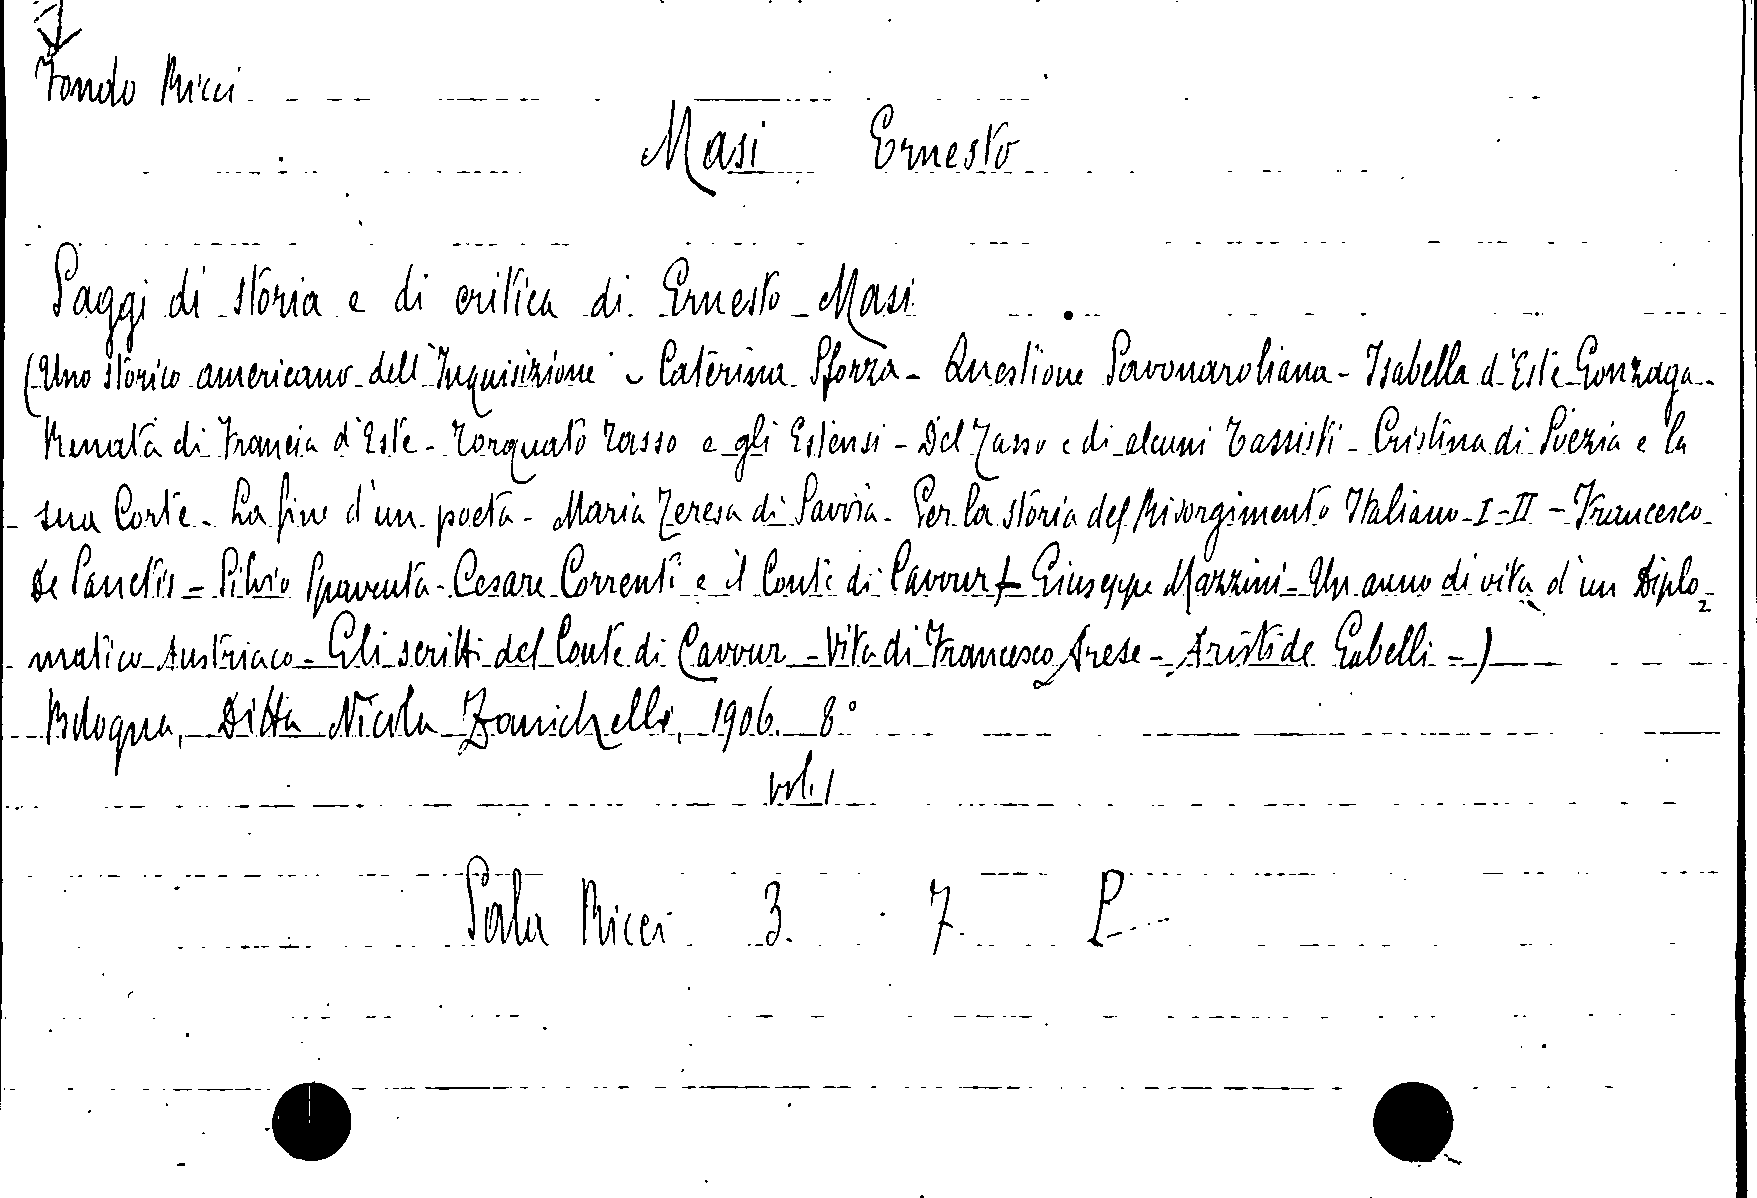 Fondo Ricci
Masi Ernesto
Saggi di storia e di critica di Ernesto Masi
(Uno storico americano dell'Inquisizione - Caterina Sforza - Questione Savonaroliana - Isabella d'Este Gonzaga -
Renata di Francia d'Este - Torquato Tasso e gli Estensi - Del Tasso e di alcuni Tassisti - Cristina di Svezia e la
sua Corte - La fine d'un poeta - Maria Teresa di Savoia - Per la storia del Risorgimento Italiano - I - II - Francesco
De Sanctis - Silvio Spaventa - Cesare Correnti e il Conte di Cavour - Giuseppe Mazzini - Un anno di vita d'un Diplo=
matico Austriaco - Gli scritti del Conte di Cavour - Vita di Francesco Arese - Aristide Gabelli -)
Bologna, Ditta Nicola Zanichelli, 1906. 8°
vol. 1
Sala Ricci 3. 7. P